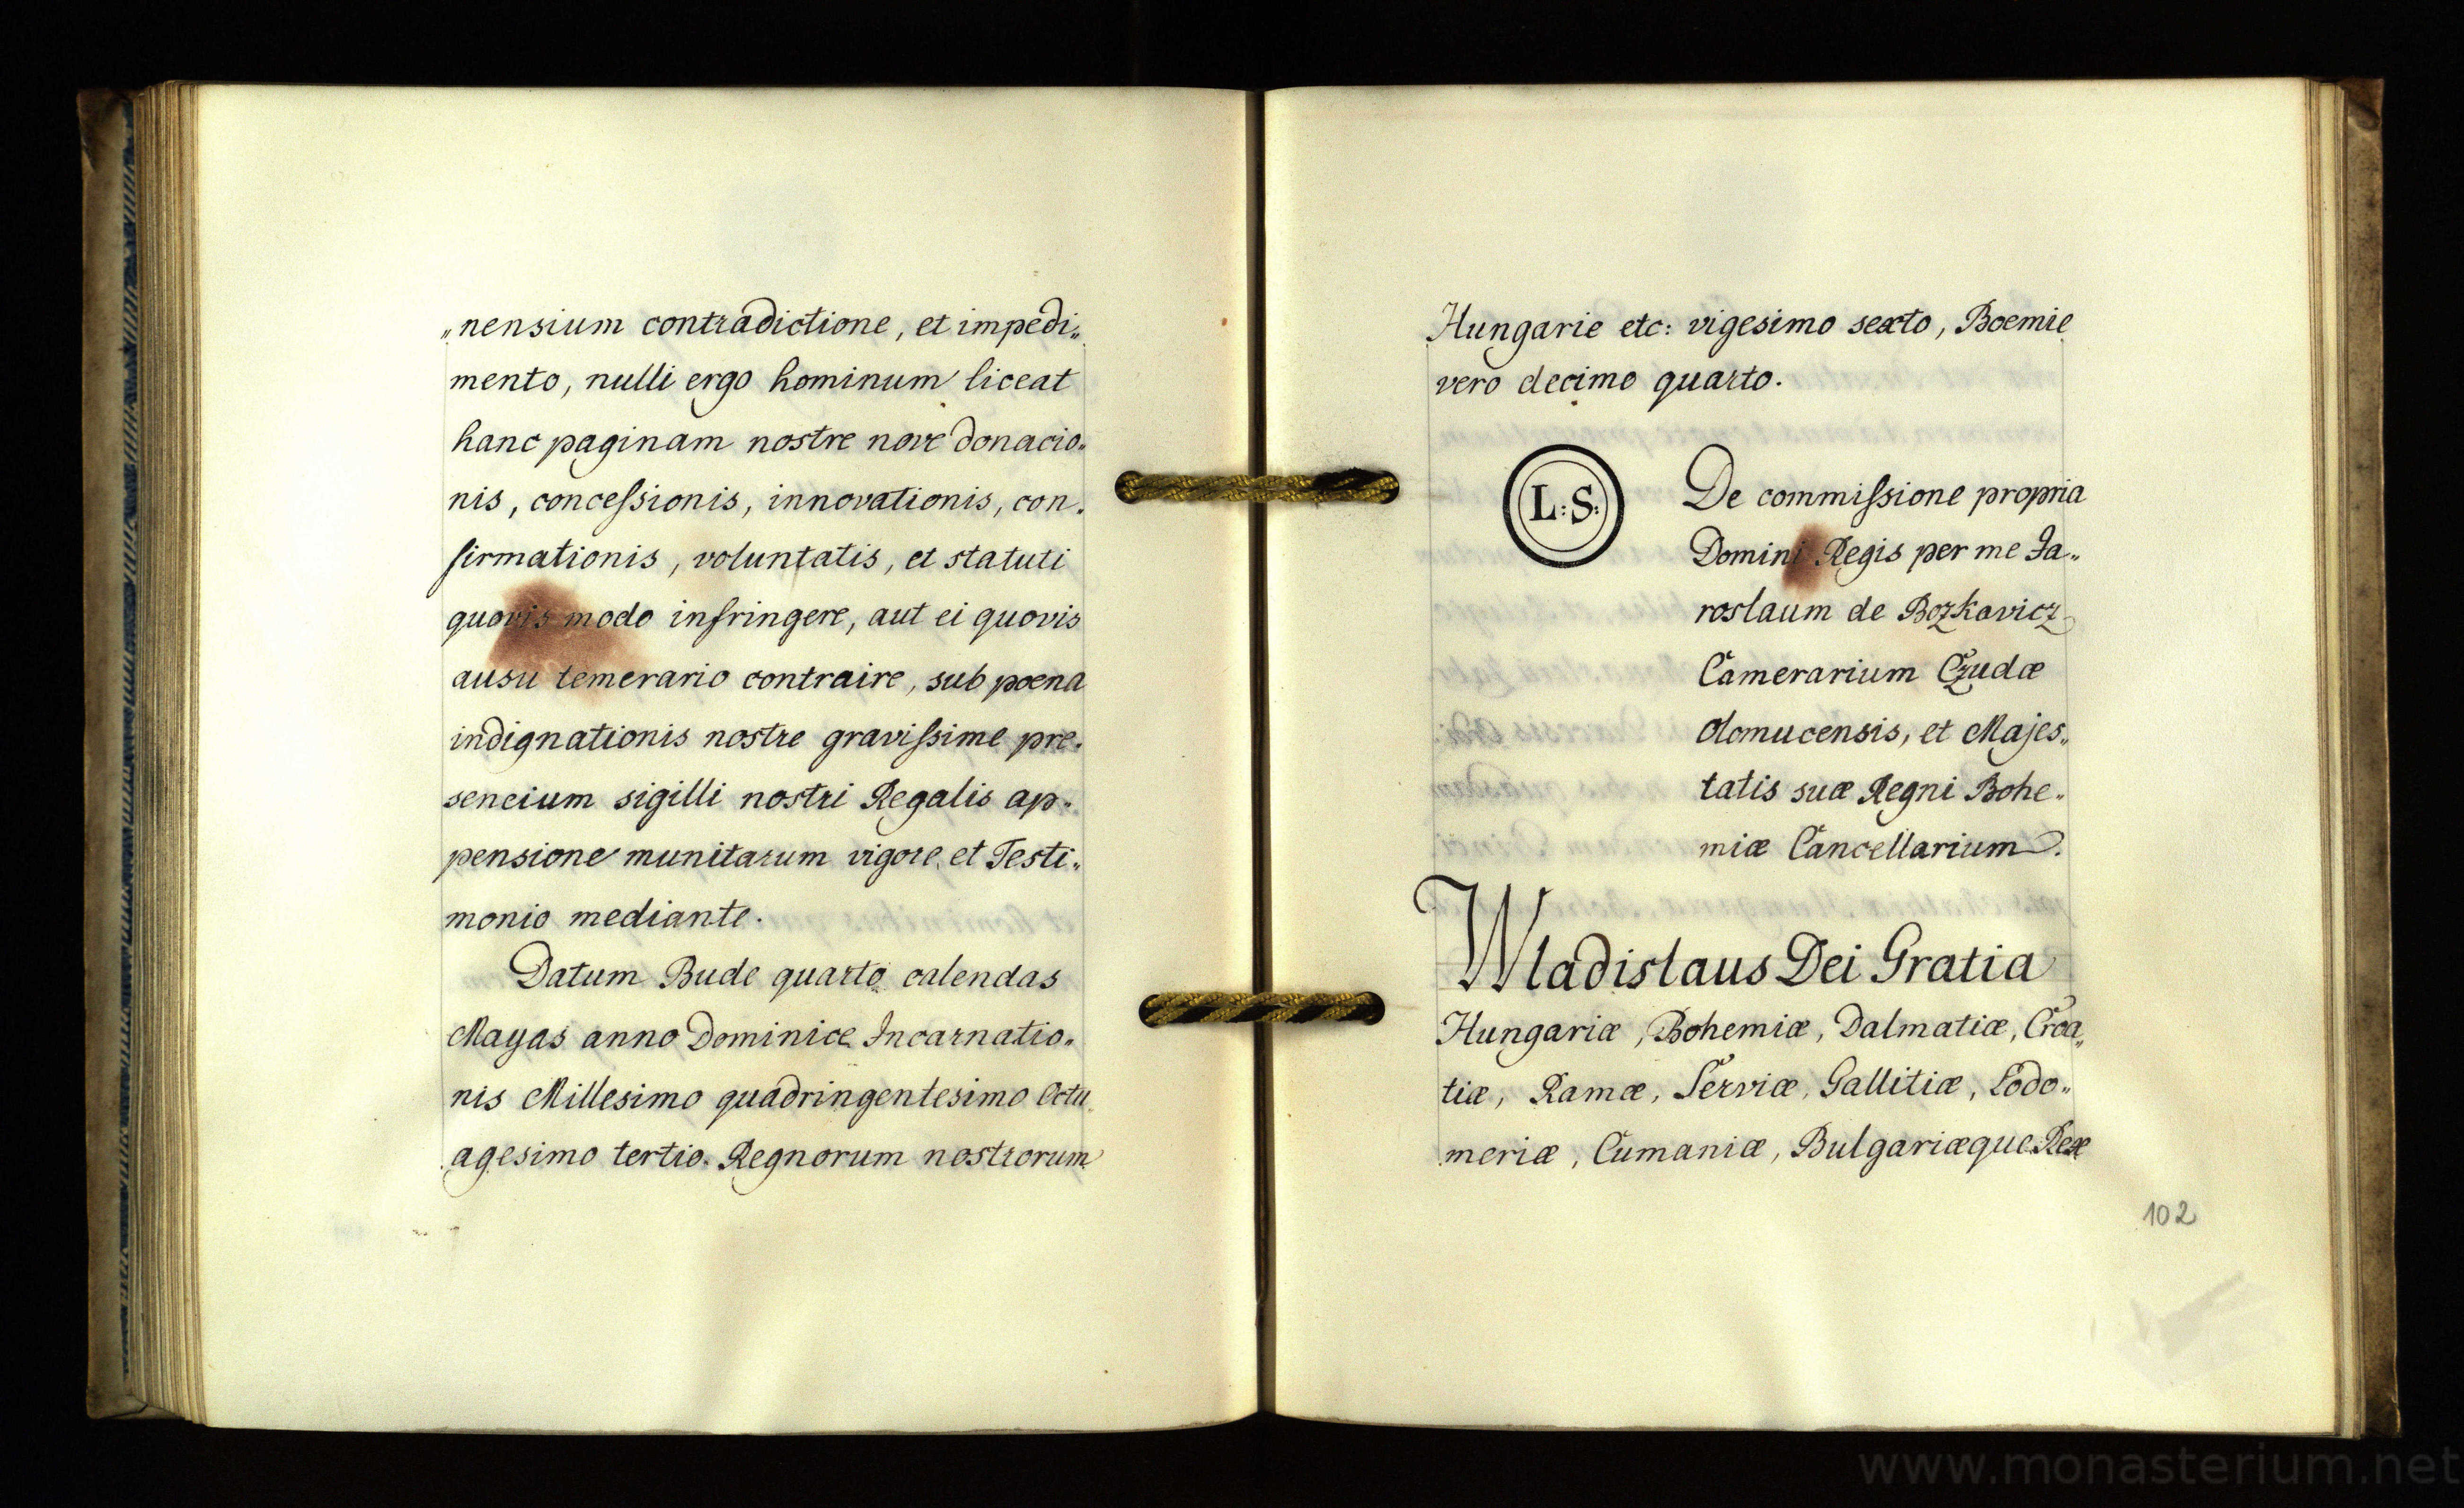 „nensium contradictione, et impedi„
mento, nulli ergo hominum liceat
hanc paginam nostre nove donacio„
nis, conceſsionis, innovationis, con„
firmationis, voluntatis, et statuti
quovis modo infringere, aut ei quovis
ausu temerario contraire, sub poena
indignationis nostre graviſsime pre„
sencium sigilli nostri Regalis ap„
pensione munitarum vigore et Testi„
monio mediante.
Datum Bude quarto calendas
Mayas anno Dominice Incarnatio„
nis Millesimo quadringentesimo Octu„
agesimo tertio. Regnorum nostrorum
Hungarie etc: vigesimo sexto, Boemie
vero decimo quarto.
L:S:
De commiſsione propria
Domini Regis per me Ja„
roslaum de Bozkovicz
Camerarium Czudæ
Olomucensis, et Majes„
tatis suæ Regni Bohe„
miæ Cancellarium.
Wladislaus Dei Gratia
Hungariæ, Bohemiæ, Dalmatiæ, Croa„
tiæ, Ramæ, Serviæ, Gallitiæ, Lodo„
meriæ, Cumaniæ, Bulgariæque Rex
102
www.monasterium.net